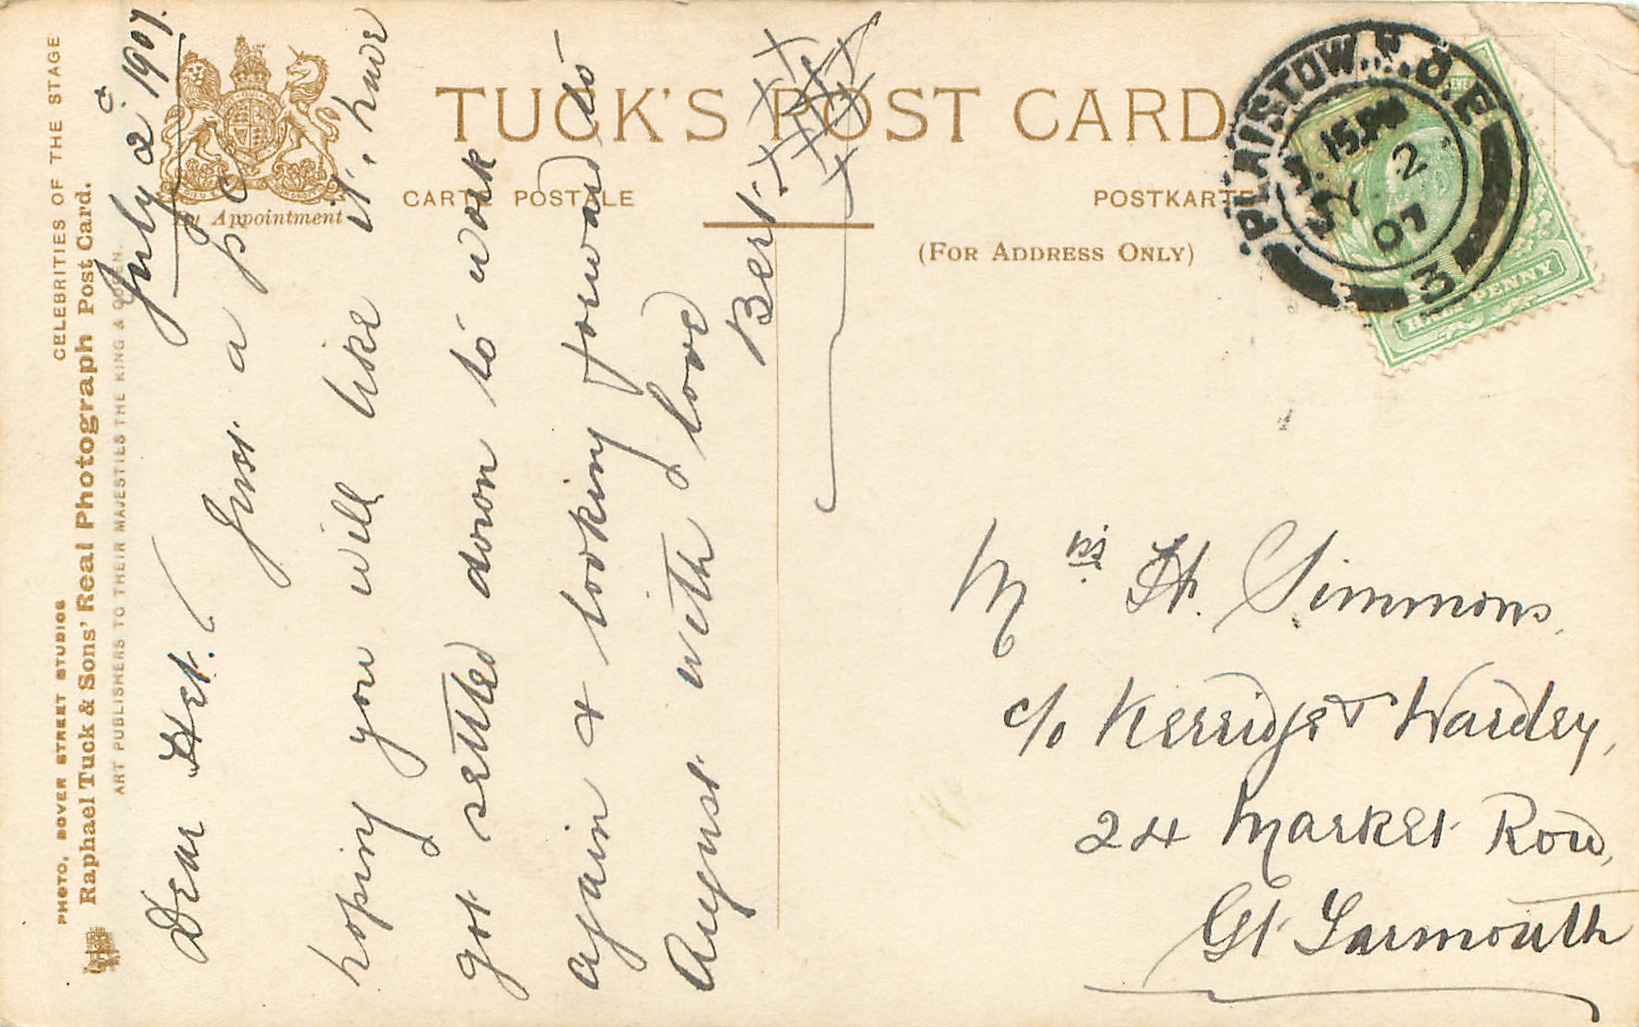 CELEBRITIES OF THE STAGE
PHOTO, DOVER STREET STUDIOS
Raphael Tuck & Sons' Real Photograph Post Card.
ART PUBLISHERS TO THEIR MAJESTIES THE KING & QUEEN.
By Appointment
TUCK'S POST CARD
CARTE POSTALE
POSTKARTE
(FOR ADDRESS ONLY)
PLAISTOW. S.O.E.
15 PM
2
07
3
HALF PENNY
July 2. 1907.
Dear Het.
Just a pc
hoping you will like it, have
got settled down to work
again & looking forward to
August with love
Bert.
x x x x x x x x
Miss H. Simmons,
c/o Kerridge & Wardley,
24 Market Row,
Gt Yarmouth